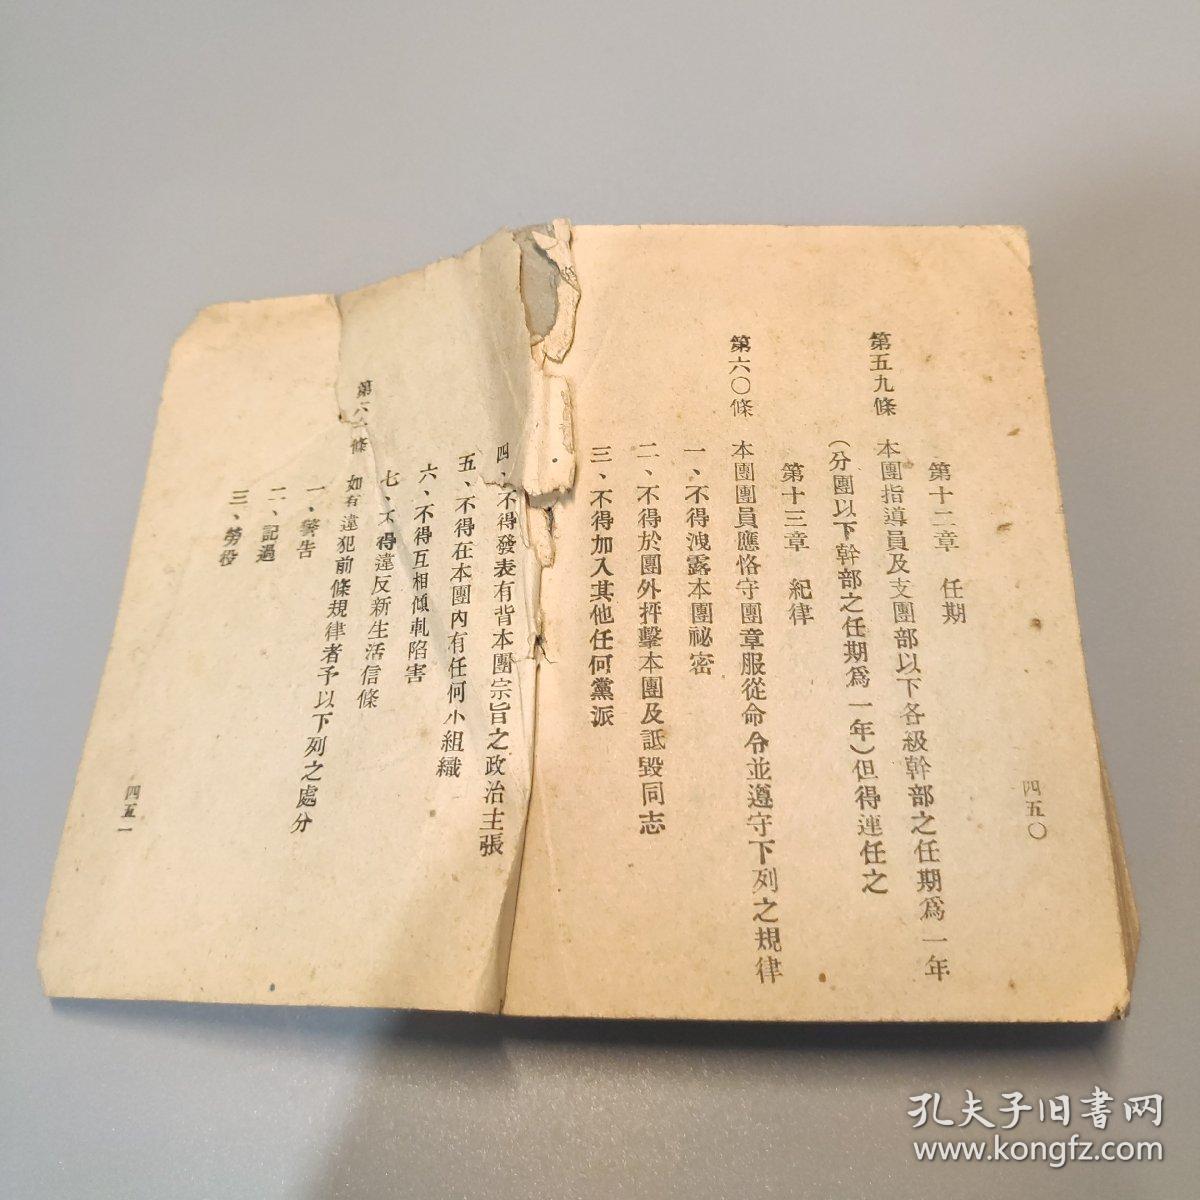 四五〇
第十二章 任期
第五九條 本團指導員及支團部以下各級幹部之任期爲一年
(分團以下幹部之任期爲一年)但得連任之
第十三章 紀律
第六〇條 本團團員應恪守團章服從命令並遵守下列之規律
一、不得洩露本團祕密
二、不得於團外抨擊本團及詆毀同志
三、不得加入其他任何黨派
四、不得發表有背本團宗旨之政治主張
五、不得在本團內有任何小組織
六、不得互相傾軋陷害
七、不得違反新生活信條
第六一條 如有違犯前條規律者予以下列之處分
一、警告
二、記過
三、勞役
四五一
孔夫子旧书网
www.kongfz.com